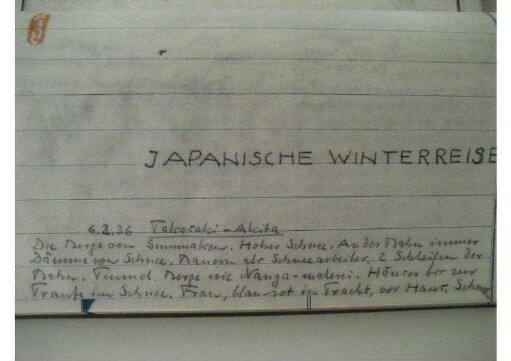 JAPANISCHE WINTERREISE
6.2.36 Takasaki - Akita
Die Berge von Gummaken. Hoher Schnee. An der Bahn immer
Dämme von Schnee. Bauern als Schneearbeiter. 2 Schleifen der
Bahn. Tunnel. Berge wie Nanga-malerei. Häuser bis zur
Traufe im Schnee. Frau, blau-rot in Tracht, vor Haus.